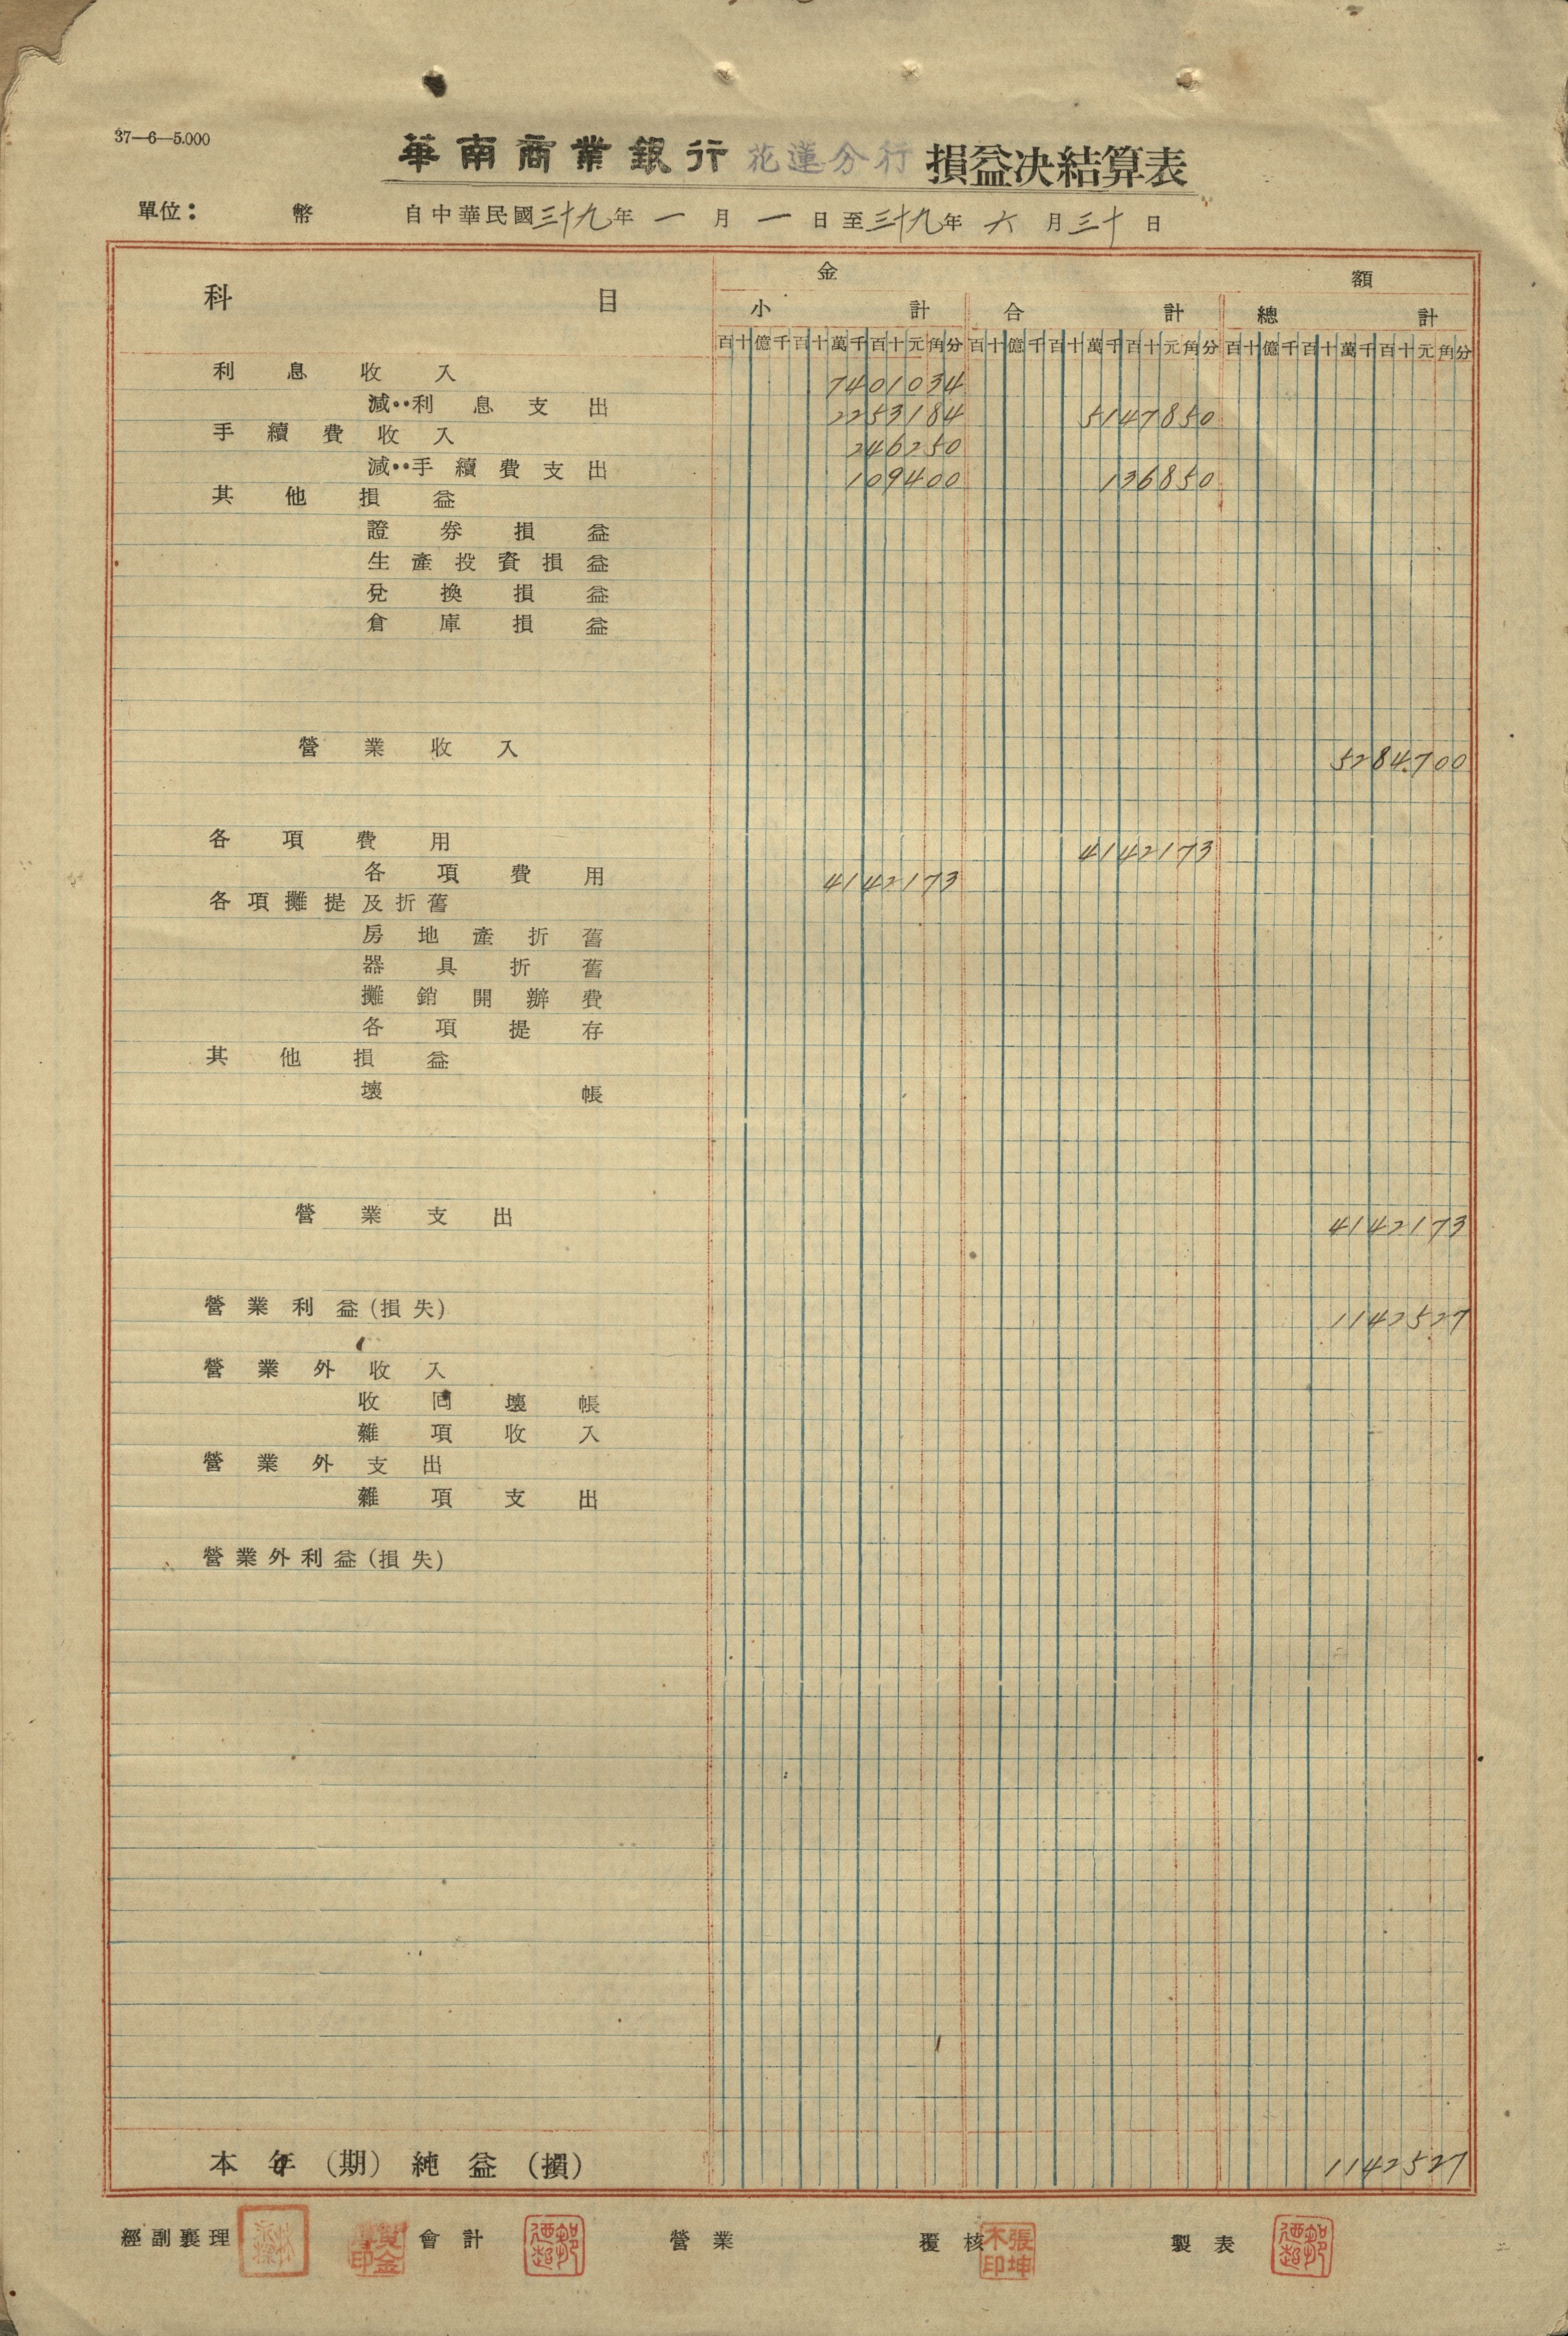 37—6—5.000
華南商業銀行花蓮分行損益決結算表
單位： 幣 自中華民國三十九年一月一日至三十九年六月三十日
科目 金額
小計 合計 總計
百十億千百十萬千百十元角分 百十億千百十萬千百十元角分 百十億千百十萬千百十元角分
利息收入 7401034
減：利息支出 2253184 5147850
手續費收入 246250
減：手續費支出 109400 136850
其他損益
證券損益
生產投資損益
兌換損益
倉庫損益
營業收入 5284700
各項費用 4142173
各項費用 4142173
各項攤提及折舊
房地產折舊
器具折舊
攤銷開辦費
各項提存
其他損益
壞帳
營業支出 4142173
營業利益(損失) 1142527
營業外收入
收回壞帳
雜項收入
營業外支出
雜項支出
營業外利益(損失)
本年(期)純益(損) 1142527
經副襄理 會計 營業 覆核 張坤木印 製表